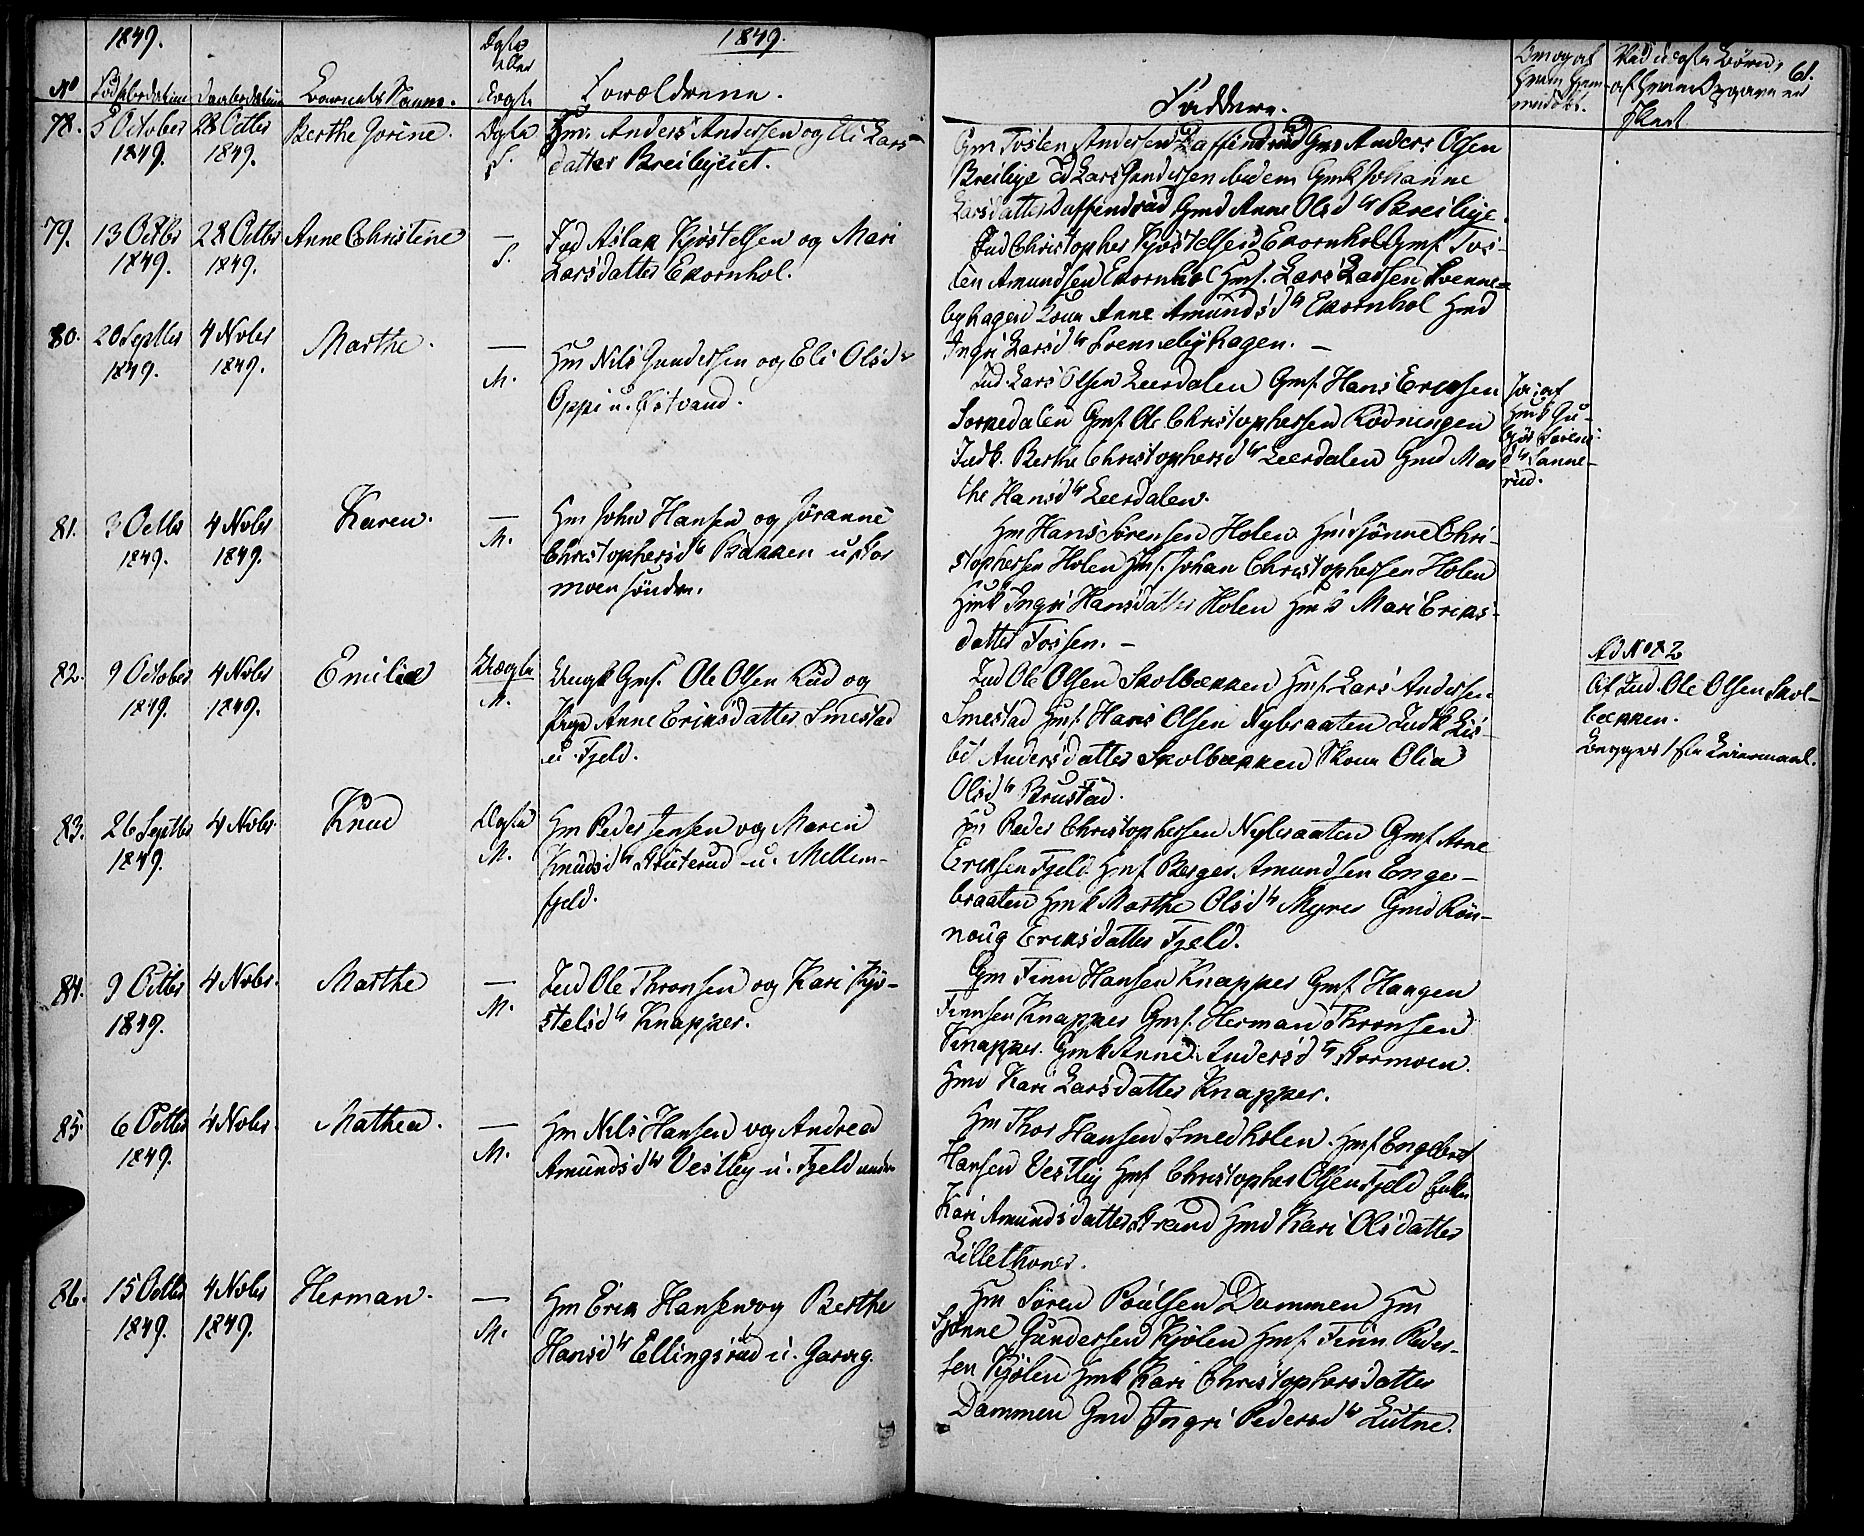 1849.
1849.
61.
No Fødselsdatum Daabsdatum Barnets Navne. Ægte eller Uægte Forældrene. Faddere.
78. 5 October 1849. 28 Octbr 1849. Berthe Jorine. Ægte S.
Gm. Anders Andersen og Eli Lars-
datter Breiliejeiet.
Gm Tosten Andersen Gmd Anders Olsen
Breilije Lars Gundersen ibidem Gmk Johanne
Larsdatter Gmd Anne Olsd tr Breilije.
79. 13 Octbr 1849. 28 Octbr 1849. Anne Christine — S.
Ind Aslak Kjøstelsen og Mari
Larsdatter Ekornhol.
Ind Christopher Kjøstelsen Ekornhol Gmf. Tos-
ten Amundsen Ekornhol Hmf. Lars Larsen Svenne-
byhagen Kone Anne Amundsd tr Ekornhol Hmd
Ingri Larsd tr Svennebyhagen. —
80. 20 Septbr 1849. 4 Novbr 1849. Marthe. — M.
Hm Nils Gundersen og Eli Olsd tr
Oppi u. Østvand.
Ind. Lars Olsen Leerdalen Gmf. Hans Eriksen
Sørkedalen Gmf. Ole Christophersen Rødningen
Indk. Berthe Christophersd tr Leerdalen Gmd Mar
the Hansd tr Leerdalen.
Ja; af
Hmk Gu-
Sørens-
d tr Sanne-
rud.
81. 3 Octbr 1849. 4 Novbr 1849. Karen. — M.
Hm John Hansen og Jøranne
Christophersd tr Bakken u Stor
moen søndre.
Hm Hans Sørensen Holen Hmf Sønne Chri-
stophersen Holen Hmf. Johan Christophersen Holen
Hmk Ingri Hansdatter Holen Hmk Mari Eriks-
datter Fossen. —
82. 9 October 1849. 4 Novbr 1849. Emilie Uægte M.
Ungk Gmf. Ole Olsen Rud og
Pige Anne Eriksdatter Smestad
u. Fjeld.
Ind Ole Olsen Skolbækken Hmf. Lars Andersen
Smestad Hmf. Hans Olsen Nybraaten Indk Lis-
be Andersdatter Skolbækken Kone Olia
Olsd tr Brustad.
Ad No 82
Af Ind. Ole Olsen Skol-
bækken.
Begges 1ste Leiermaal.
83. 26 Septbr 1849. 4 Novbr Knud Ægte M.
Hm Peder Jensen og Maren
Knudsd tr Skuterud u. Mellem-
fjeld.
Hm Peder Christophersen Nybraaten Gmf Arne
Eriksen Fjeld. Hmf Berger Amundsen Enge-
braaten Hmk Marthe Olsd tr Myrer Gmd Røn-
noug Eriksdatter Fjeld.
84. 9 Octbr 1849. 4 Novbr. Marthe — M.
Ind Ole Thronsen og Kari Kjø-
stelsd tr Knapper.
Gm Finn Hansen Knapper Gmf Haagen
Finnsen Knapper Gmf. Herman Thronsen
Knapper. Gmk Anne Andersd tr Stormoen
Hmd Kari Larsdatter Knapper.
85. 6 Octbr 1849. 4 Novbr. Mathea. — M.
Hm Nils Hansen og Andrea
Amundsd tr Vestlej u. Fjeld
Hm Thor Hansen Smedholen. Hmf Engebret
Hansen Vestlej Hmf Christopher Olsen Fjeld Enke
Kari Amundsdatter Strand Hmd Kari Olsdatter
Lillethoner.
86. 15 Octbr 1849. 4 Novbr 1849. Herman. — M.
Hm Erik Hansen og Berthe
Hansd tr Ellingsrud u. Garvig.
Hm Søren Poulsen Dammen Hm
Sjønne Gundersen Kjølen Hmf. Finn Peder-
sen Kjølen Hmk Kari Christophersdatter
Dammen Gmd Ingri Pedersd tr Lutne.